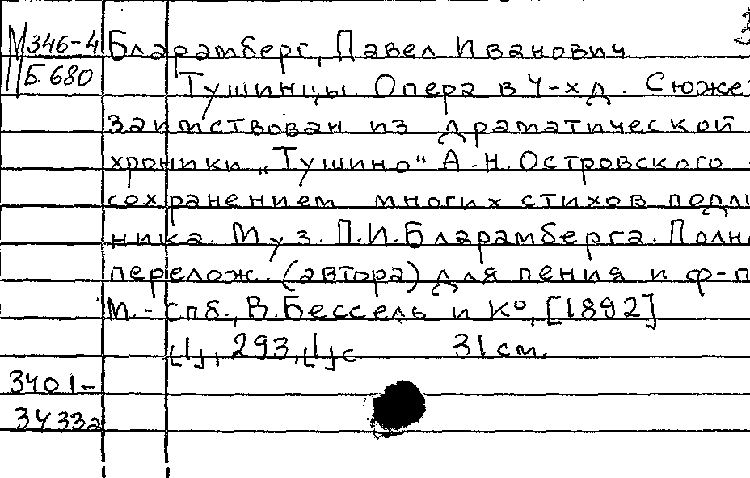 М 346-4 Бларамберг, Павел Иванович
Б 680 Тушинцы. Опера в 4-х д. Сюже
заимствован из драматической
хроники „Тушино" А.Н. Островского
сохранением многих стихов подли
ника. Муз. П.И. Бларамберга. Полн
перелож. (автора) для пения и ф-п
М.- Спб., В. Бессель и К°, [1892]
[1], 293, [1] с 31 cm.
3401-
3433а